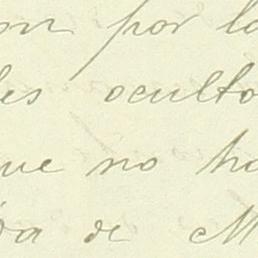 on por la
les oculto
que no ha
da de M